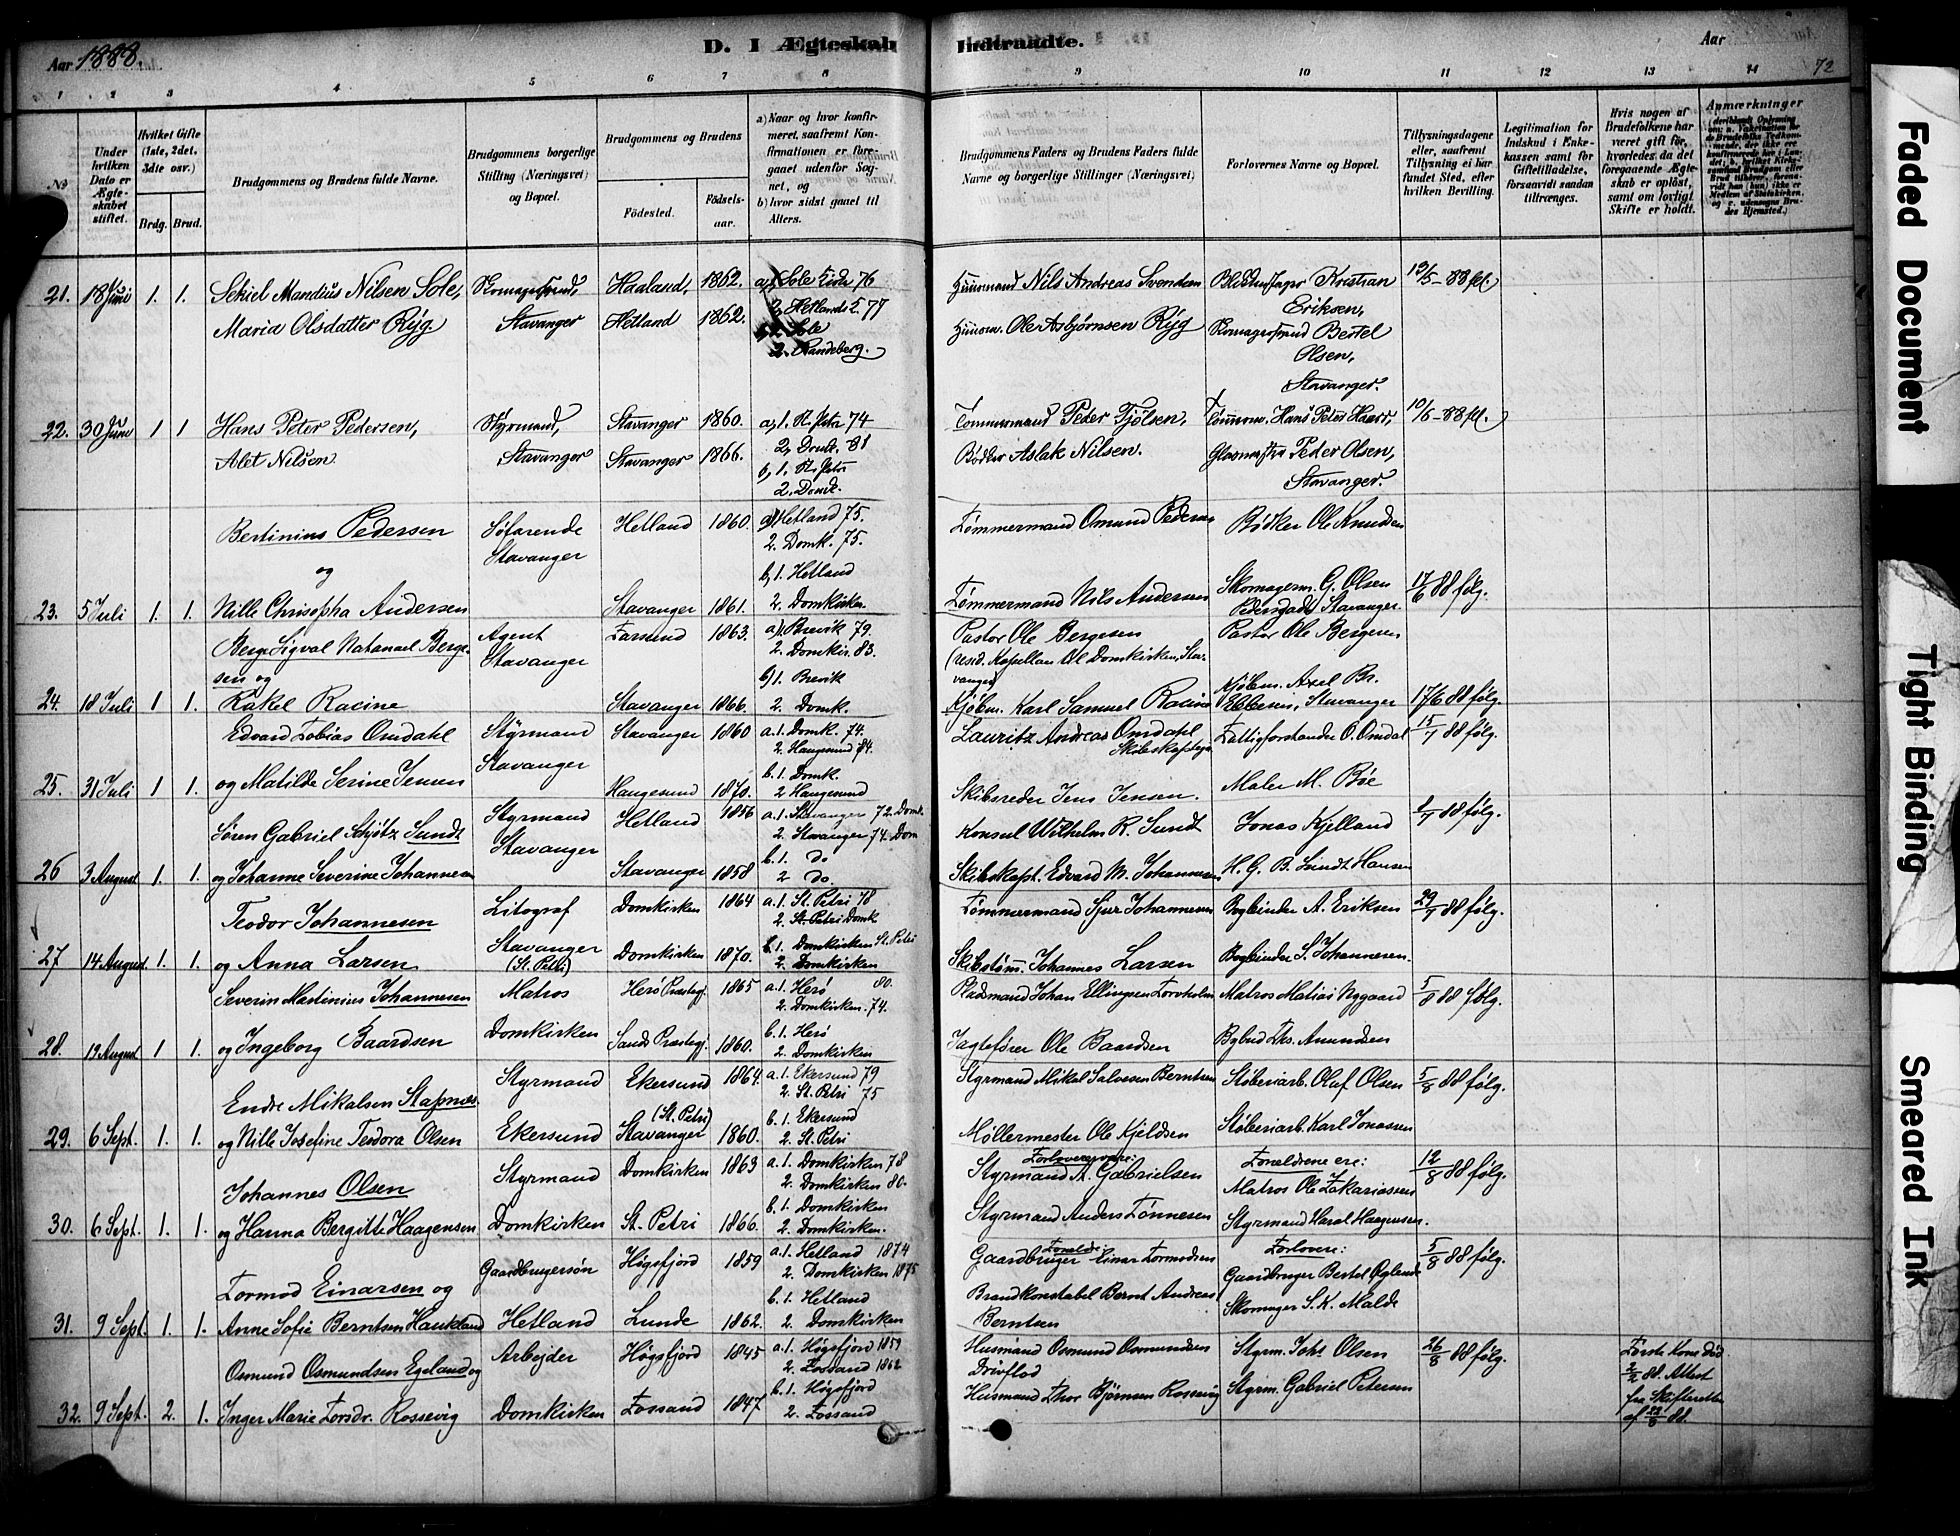 Aar 1888.
D. I Ægteskab Indtraadte.
Aar
72
1 2 3 4 5 6 7 8 9 10 11 12 13 14
No
Under hvilken Dato er Ægteskabet stiftet.
Hvilket Gifte (1ste, 2det, 3die osv.)
Brdg. Brud.
Brudgommens og Brudens fulde Navne.
Brudgommens borgerlige Stilling (Næringsvei) og Bopæl.
Brudgommens og Brudens
Fødested.
Fødselsaar.
a) Naar og hvor konfirmeret, saafremt Konfirmationen er foregaaet udenfor Sognet, og
b) hvor sidst gaaet til Alters.
Brudgommens Faders og Brudens Faders fulde Navne og borgerlige Stillinger (Næringsvei)
Forlovernes Navne og Bopæl.
Tillysningsdagene eller, saafremt Tillysning ei har fundet Sted, efter hvilken Bevilling.
Legitimation for Indskud i Enkekassen samt for Giftetilladelse, forsaavidt saadan tiltrænges.
Hvis nogen af Brudefolkene har været gift før, hvorledes da det foregaaende Ægteskab er opløst, samt om lovligt Skifte er holdt.
Anmærkninger
21. 18 Juni 1. 1. Sekiel Mandius Nilsen Sole, Skomagersvend, Haaland, 1862. a) 1. Sole Kirke 76 Huusmand Nils Andreas Svendsen Kristian 13/5-88 fl.
Maria Olsdatter Ryg Stavanger Hetland 1862. 2, Hetlands K. 77 Huusm. Ole Asbjørnsen Ryg Eriksen,
1. Sole Skomagersvend Bertel
2. Randeberg. Olsen,
Stavanger.
22. 30 Juni 1 1 Hans Peter Pedersen, Styrmand, Stavanger 1860. a, 1. St. Petri 74 Tømmermand Peder Fjølsen, Tømmerm. Hans Peter Haarr, 10/5-88 fl.
Alet Nilsen Stavanger Stavanger 1866. 2, Domk. 81 Bødker Aslak Nilsen. Peder Olsen,
b, 1. St. Petri Stavanger.
2. Domk.
Bertinius Pedersen Søfarende Hetland 1860. a) Hetland 75. Tømmermand Omund Pedersen Bødker Ole Knudsen
og Stavanger 2. Domk. 75.
b, 1. Hetland Skomagerm. G. Olsen 17/6 88 følg.
23. 5 Juli 1. 1. Nille Chrisopha Andersen Stavanger 1861. 2. Domkirken. Tømmermand Nils Andersen Pedersgade Stavanger.
Berge Sigval Natanael Berge- Agent Farsund 1863. a) 1. Brevik 79. Pastor Ole Bergesen Pastor Ole Bergesen
sen og Stavanger 2. Domkir. 83. (resid. Kapellan til Domkirken, Sta-
b) 1. Brevik vanger) Kjøbm. Axel Br.
24. 18 Juli 1 1. Rakel Racine Stavanger 1866. 2. Domk. Kjøbm. Karl Samuel Racine Ebbesen, Stavanger 17/6 88 følg.
Edvard Tobias Omdahl Styrmand Stavanger 1860 a. 1. Domk. 74. Lauritz Andreas Omdahl Fattigforstander O. Omdal 15/7 88 følg.
Stavanger 2. Haugesund 84. Skibskaptajn
b. 1. Domk.
25. 31 Juli 1 1. og Matilde Serine Jensen Haugesund 1870. 2 Haugesund Skibsreder Jens Jensen. Maler M. Bøe
Søren Gabriel Schjøtz Sundt Styrmand Hetland 1856 a. 1. Stavanger 72. Domk. Konsul Wilhelm R. Sundt Jonas Kjelland 1/7 88 følg.
Stavanger 2. Stavanger 74. Dom
b. 1. Do
26 3 August 1. 1. og Johanne Severine Johannesen Stavanger 1858 2 Do Skibskapt. Edvard M. Johannesen H. G. B. Sundt Hansen
Teodor Johannesen Litograf Domkirken 1864 a. 1. St. Petri 78 Tømmermand Sjur Johannesen Bogbinder A. Eriksen 29/7 88 følg.
Stavanger 2. St. Petri Domk
27 14 August. 1. 1. og Anna Larsen (St. Petri) Domkirken 1870. b. 1. Domkirken St. Petri Skibstøm. Johannes Larsen Bogbinder S. Johannesen.
2. Domkirken
Severin Martinius Johannesen Matros Herø Præstegj. 1865 a. 1. Herø 80. Pladsmand Johan Ellingsen Torvholm Matros Matias Nygaard 5/8 88 følg.
2. Domkirken. 74.
b. 1. Herø
28. 19 August 1 1. og Ingeborg Baardsen Domkirken Sands Præstegj. 1860. 2. Domkirken Jagtefører Ole Baardsen Bybud Ths. Amundsen
Endre Mikalsen Stapnæs Styrmand Ekersund 1864. a. 1. Ekersund 79 Styrmand Mikal Salvesen Berntsen Støberiarb. Oluf Olsen 5/8 88 følg.
2. St. Petri 75
(St. Petri) b. 1. Ekersund
29. 6 Sept. 1. 1. og Nille Josefine Teodora Olsen Ekersund Stavanger 1860. 2. St. Petri Møllermester Ole Kjeldsen Støberiarb. Karl Jonassen
Johannes Olsen Styrmand Domkirken 1863 a. 1. Domkirken 78 Forlovere: Forældrene ere: 12/8 88 følg.
2. Domkirken 80. Styrmand A. Gabrielsen Matros Ole Zakariassen
b. 1. Domkirken
30. 6 Sept. 1. 1. og Hanna Bergitte Haagensen Domkirken St. Petri 1866. 2. Domkirken. Styrmand Anders Tønnesen Styrmand Haral Haagensen.
Tormod Einarsen og Gaardbrugersøn Høgsfjord 1859 a. 1. Hetland 1874 Forældr: Forlovere: 5/8 88 følg.
2. Domkirken 1875 Gaardbruger Einar Tormodsen Gaardbruger Bertel Øglend
b. 1. Hetland Brandkonstabel Bernt Andreas Skomager S. K. Malde
31. 9 Sept. 1. 1. Anne Sofie Berntsen Haukland Hetland Lunde 1862. 2. Domkirken Berntsen
Osmund Osmundsen Egeland og Arbejder Høgsfjord 1845 a. 1. Høgsfjord 1859 Husmand Osmund Osmundsen Styrm. Johs Olsen 26/8 88 følg. Første Kone død
2. Fossand 1862 2/2 88. Attest
b. 1. Høgsfjord fra Skifteretten
32. 9 Sept. 2. 1. Inger Marie Torsdr. Rossevig Domkirken Fossand 1847 2. Fossand Husmand Thor Bjørnsen Rossevig Styrm. Gabriel Petersen af 22/8 88.
Faded Document
Tight Binding
Smeared Ink